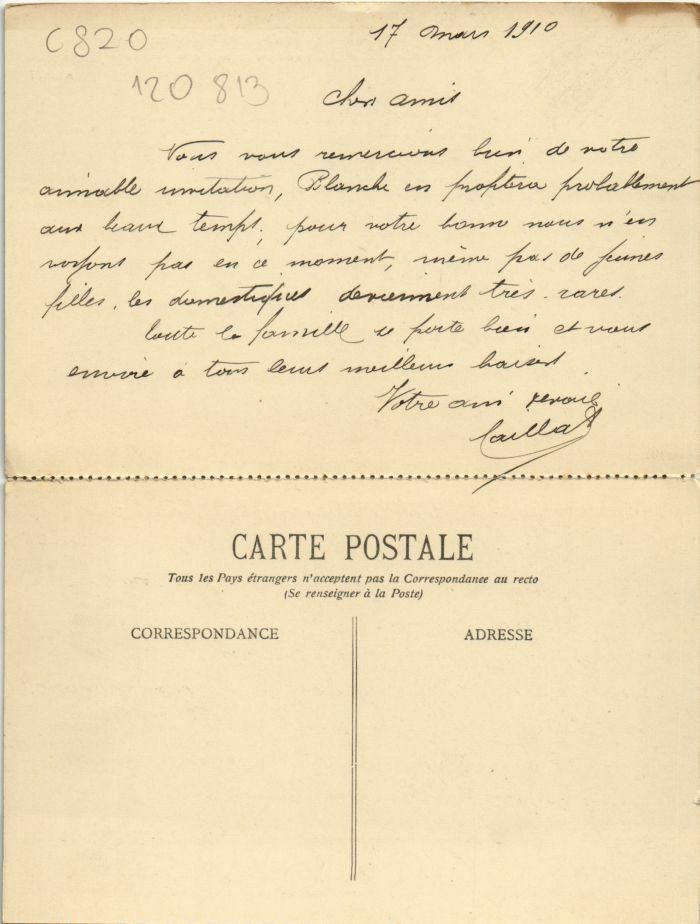 C820
17 mars 1910
120 813
Chers amis
Nous vous remercions bien de votre
aimable invitation, Blanche en profitera probablement
aux beaux temps, pour votre bonne nous n'en
voyons pas en ce moment, même pas de jeunes
filles, les domestiques deviennent très rares.
Toute la famille se porte bien et vous
envoie à tous leurs meilleurs baisers
Votre ami dévoué
Caillat
CARTE POSTALE
Tous les Pays étrangers n'acceptent pas la Correspondance au recto
(Se renseigner à la Poste)
CORRESPONDANCE
ADRESSE